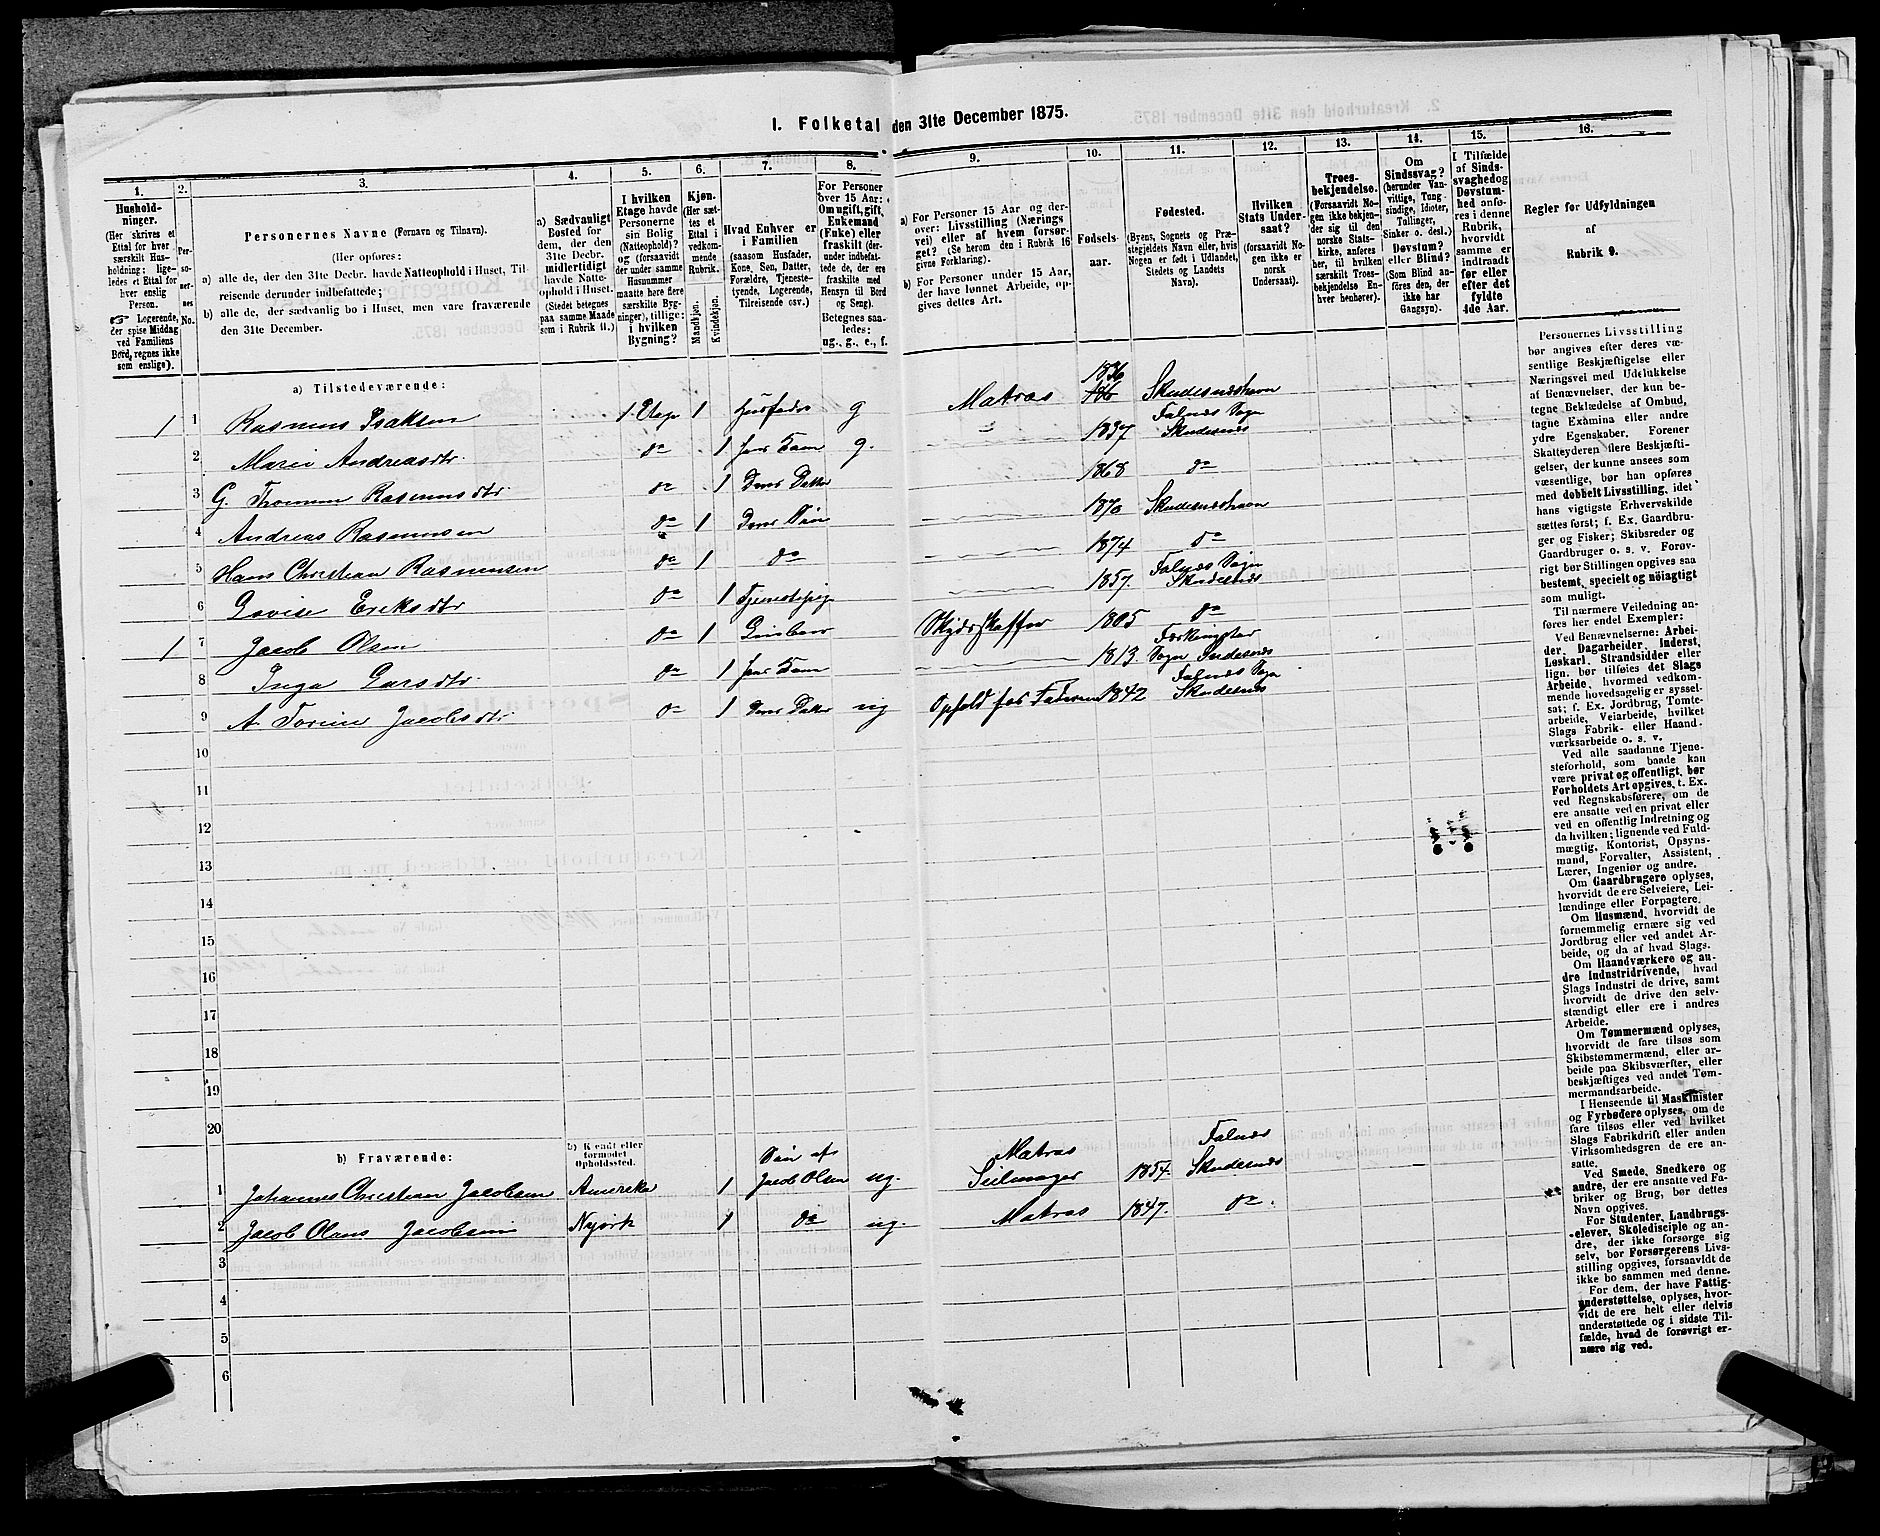 I. Folketal den 31te December 1875.
1.
Hushold-
ninger.
(Her skrives et
Ettal for hver
særskilt Hus-
holdning; lige-
ledes et Ettal for
hver enslig
Person.
☞ Logerende,
der spise Middag
ved Familiens
Bord, regnes ikke
som enslige).
2.
Per-
so-
ner-
nes
No.
3.
Personernes Navne (Fornavn og Tilnavn).
(Her opføres:
a) alle de, der den 31te Decbr. havde Natteophold i Huset, Til-
reisende derunder indbefattede;
b) alle de, der sædvanlig bo i Huset, men vare fraværende
den 31te December.
4.
a) Sædvanligt
Bosted for
dem, der den
31te Decbr.
midlertidigt
havde Natte-
ophold i Huset.
(Stedet betegnes
paa samme Maade
som i Rubrik 11.)
5.
I hvilken
Etage havde
Personerne
sin Bolig
(Natteophold)?
og (forsaavidt
der under samme
Husnummer
maatte høre flere
særskilte Byg-
ninger), tillige:
i hvilken
Bygning?
6.
Kjøn.
(Her sæt-
tes et
Ettal i
vedkom-
mende
Rubrik.
Mandkjøn.
Kvindekjøn.
7.
Hvad Enhver er
i Familien
(saasom Husfader,
Kone, Søn, Datter,
Forældre, Tjeneste-
tyende, Logerende,
Tilreisende osv.)
8.
For Personer
over 15 Aar:
Om ugift, gift,
Enkemand
(Enke) eller
fraskilt (der-
under indbefat-
tede de, der ere
fraskilte med
Hensyn til Bord
og Seng).
Betegnes saa-
ledes:
ug., g., e., f.
9.
a) For Personer 15 Aar og der-
over: Livsstilling (Nærings
vei) eller af hvem forsør-
get? (Se herom den i Rubrik 16
givne Forklaring).
b) For Personer under 15 Aar,
der have lønnet Arbeide, op-
gives dettes Art.
10.
Fødsels-
aar.
11.
Fødested.
(Byens, Sognets og Præ-
stegjeldets Navn eller, hvis
Nogen er født i Udlandet,
Stedets og Landets
Navn).
12.
Hvilken
Stats Under-
saat?
(forsaavidt No-
gen ikke er
norsk
Undersaat).
13.
Troes-
bekjendelse.
(Forsaavidt No-
gen ikke bekjen-
der sig til den
norske Stats-
kirke, anføres
her, til hvilken
særskilt Troes-
bekjendelse En-
hver henhører).
14.
Om
Sindssvag?
(herunder Van-
vittige, Tung-
sindige, Idioter,
Tullinger,
Sinker o. desl.)
Døvstum?
eller Blind?
(Som Blind an-
føres den, der
ikke har
Gangsyn).
15.
I Tilfælde
af Sinds-
svaghed og
Døvstum-
hed anfø-
res i denne
Rubrik,
hvorvidt
samme er
indtraadt
før eller
efter det
fyldte
4de Aar.
16.
Regler for Udfyldningen
af
Rubrik 9.
a) Tilstedeværende:
1 1 Rasmus Isaksen 1. Etage 1 Husfader g Matros 1836 Skudesneshavn
2 Marie Andreasdtr. do 1 hans Kone g. " 1837 Falnæs Sogn Skudesnæs
3 G. Thomine Rasmusdtr. do 1 Deres Datter 1868 do
4 Andreas Rasmussen do 1 Deres Søn 1870 Skudesneshavn
5 Hans Christian Rasmussen do 1 do 1874 do
6 Lovise Eriksdtr do 1 Tjenestepige 1857. Falnæs Sogn Skudesnæs
1 7 Jacob Olsen do 1 Skydsskaffer 1805 do
8 Inga Larsdtr. do 1 hans Kone 1813. Sogn
9 A. Torine Jacobsdtr do 1 Deres Datter ug Ophold hos Faderen 1842 Falnæs Sogn Skudesnæs
10
11
12
13
14
15
16
17
18
19
20
b) Fraværende:
b) Kjendt eller
formodet
Opholdssted.
1 Johannes Christian Jacobsen Amerika 1 Søn af Jacob Olsen ug. Matros Seilmager 1854. Falnæs Skudesnæs
2 Jacob Olaus Jacobsen Nyork 1 do ug. Matros 1847. do.
3
4
5
6
Personernes Livsstilling
bør angives efter deres væ-
sentlige Beskjæftigelse eller
Næringsvei med Udelukkelse
af Benævnelser, der kun be-
tegne Beklædelse af Ombud,
tagne Examina eller andre
ydre Egenskaber. Forener
Skatteyderen flere Beskjæfti-
gelser, der kunne ansees som
væsentlige, bør han opføres
med dobbelt Livsstilling, idet
hans vigtigste Erhvervskilde
sættes først; f. Ex. Gaardbru-
ger og Fisker; Skibsreder og
Gaardbruger o. s. v. Forøv-
rigt bør Stillingen opgives saa
bestemt, specielt og nøiagtigt
som muligt.
Til nærmere Veiledning an-
føres her endel Exempler:
Ved Benævnelserne: Arbei-
der, Dagarbeider, Inderst,
Løskarl, Strandsidder eller
lign. bør tilføies det Slags
Arbeide, hvormed vedkom-
mende hovedsagelig er syssel-
sat; f. Ex. Jordbrug, Tomte-
arbeide, Veiarbeide, hvilket
Slags Fabrik- eller Haand-
værksarbeide o. s. v.
Ved alle saadanne Tjene-
steforhold, som baade kan
være privat og offentligt, bør
Forholdets Art opgives, f. Ex.
ved Regnskabsførere, om de
ere ansatte ved en privat eller
ved en offentlig Indretning og
da hvilken; lignende ved Fuld-
mægtig, Kontorist, Opsyns-
mand, Forvalter, Assistent,
Lærer, Ingeniør og andre.
Om Gaardbrugere oplyses,
hvorvidt de ere Selveiere, Lei-
lændinge eller Forpagtere.
Om Husmænd, hvorvidt de
fornemmelig ernære sig ved
Jordbrug eller ved andet Ar-
beide, og da af hvad Slags.
Om Haandværkere og an-
dre Industridrivende, hvad
Slags Industri de drive, samt
hvorvidt de drive den selv-
stændigt eller ere i andres
Arbeide.
Om Tømmermænd oplyses,
hvorvidt de fare tilsøs som
Skibstømmermænd, eller ar-
beide paa Skibsværfter, eller
beskjæftiges ved andet Tøm-
mermandsarbeide.
I Henseende til Maskinister
og Fyrbødere oplyses, om de
fare tilsøs eller ved hvilket
Slags Fabrikdrift eller anden
Virksomhedsgren de ere an-
satte.
Ved Smede, Snedkere og
andre, der ere ansatte ved Fa-
briker og Brug, bør dettes
Navn opgives.
For Studenter, Landbrugs-
elever, Skoledisciple og an-
dre, der ikke forsørge sig
selv, bør Forsørgerens Livs-
stilling opgives, forsaavidt de
ikke bo sammen med denne.
For dem, der have Fattig-
understøttelse, oplyses, hvor-
vidt de ere helt eller delvis
understøttede og i sidste Til-
fælde, hvad de forøvrigt er-
nære sig ved.